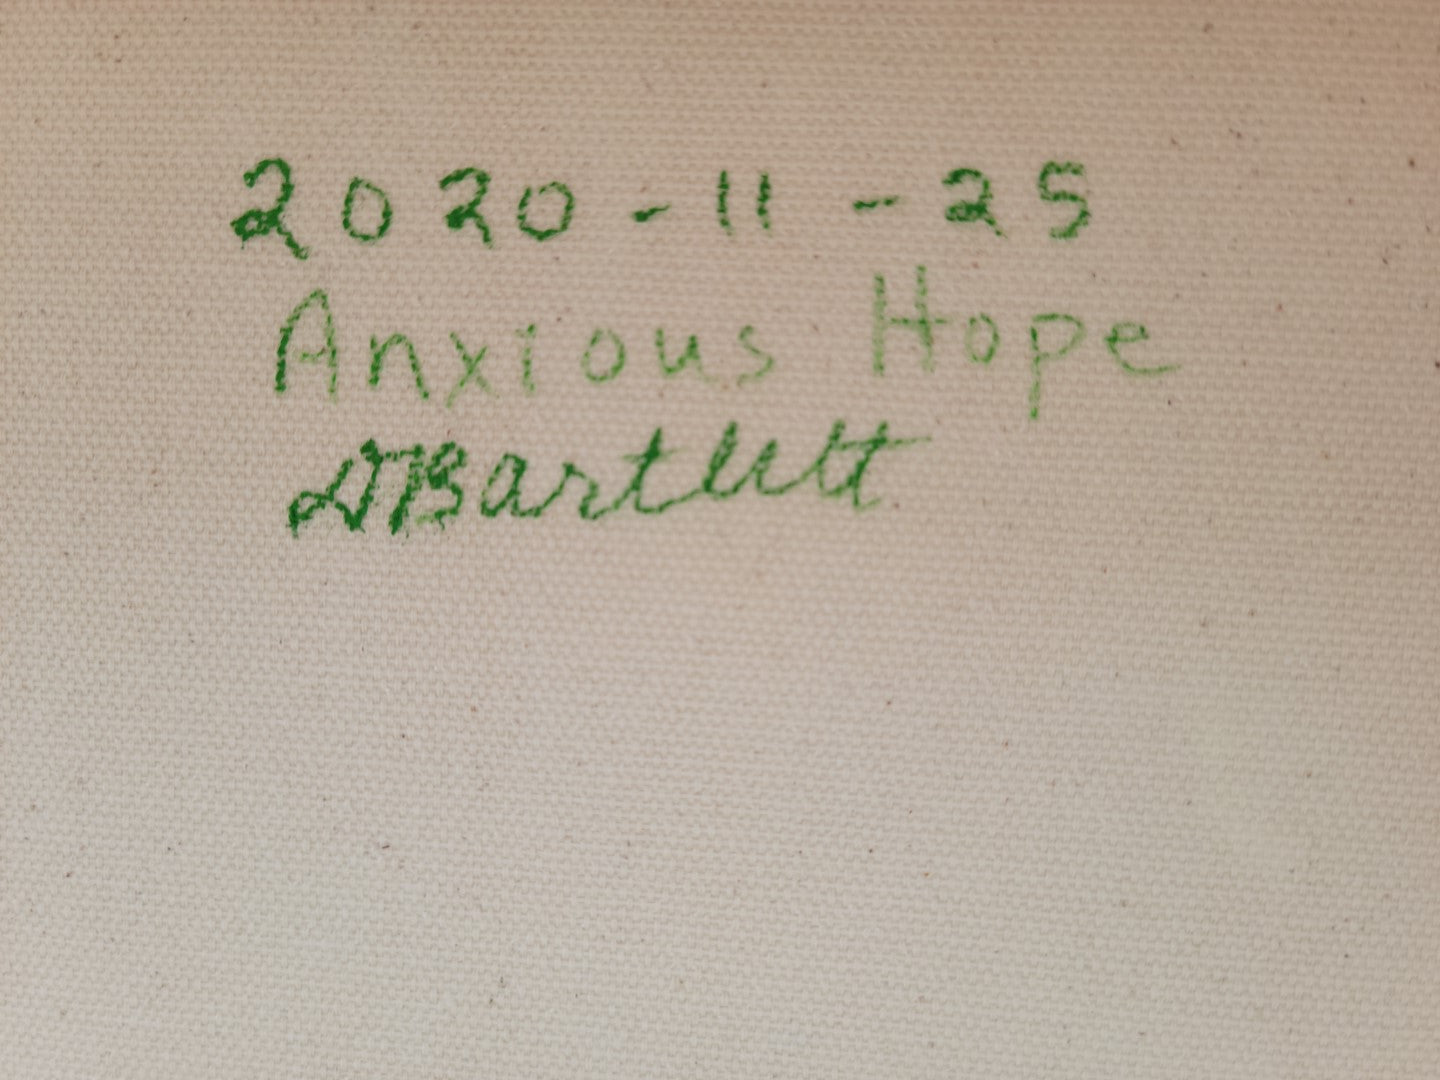 2020-11-25
Anxious Hope
DBartlett